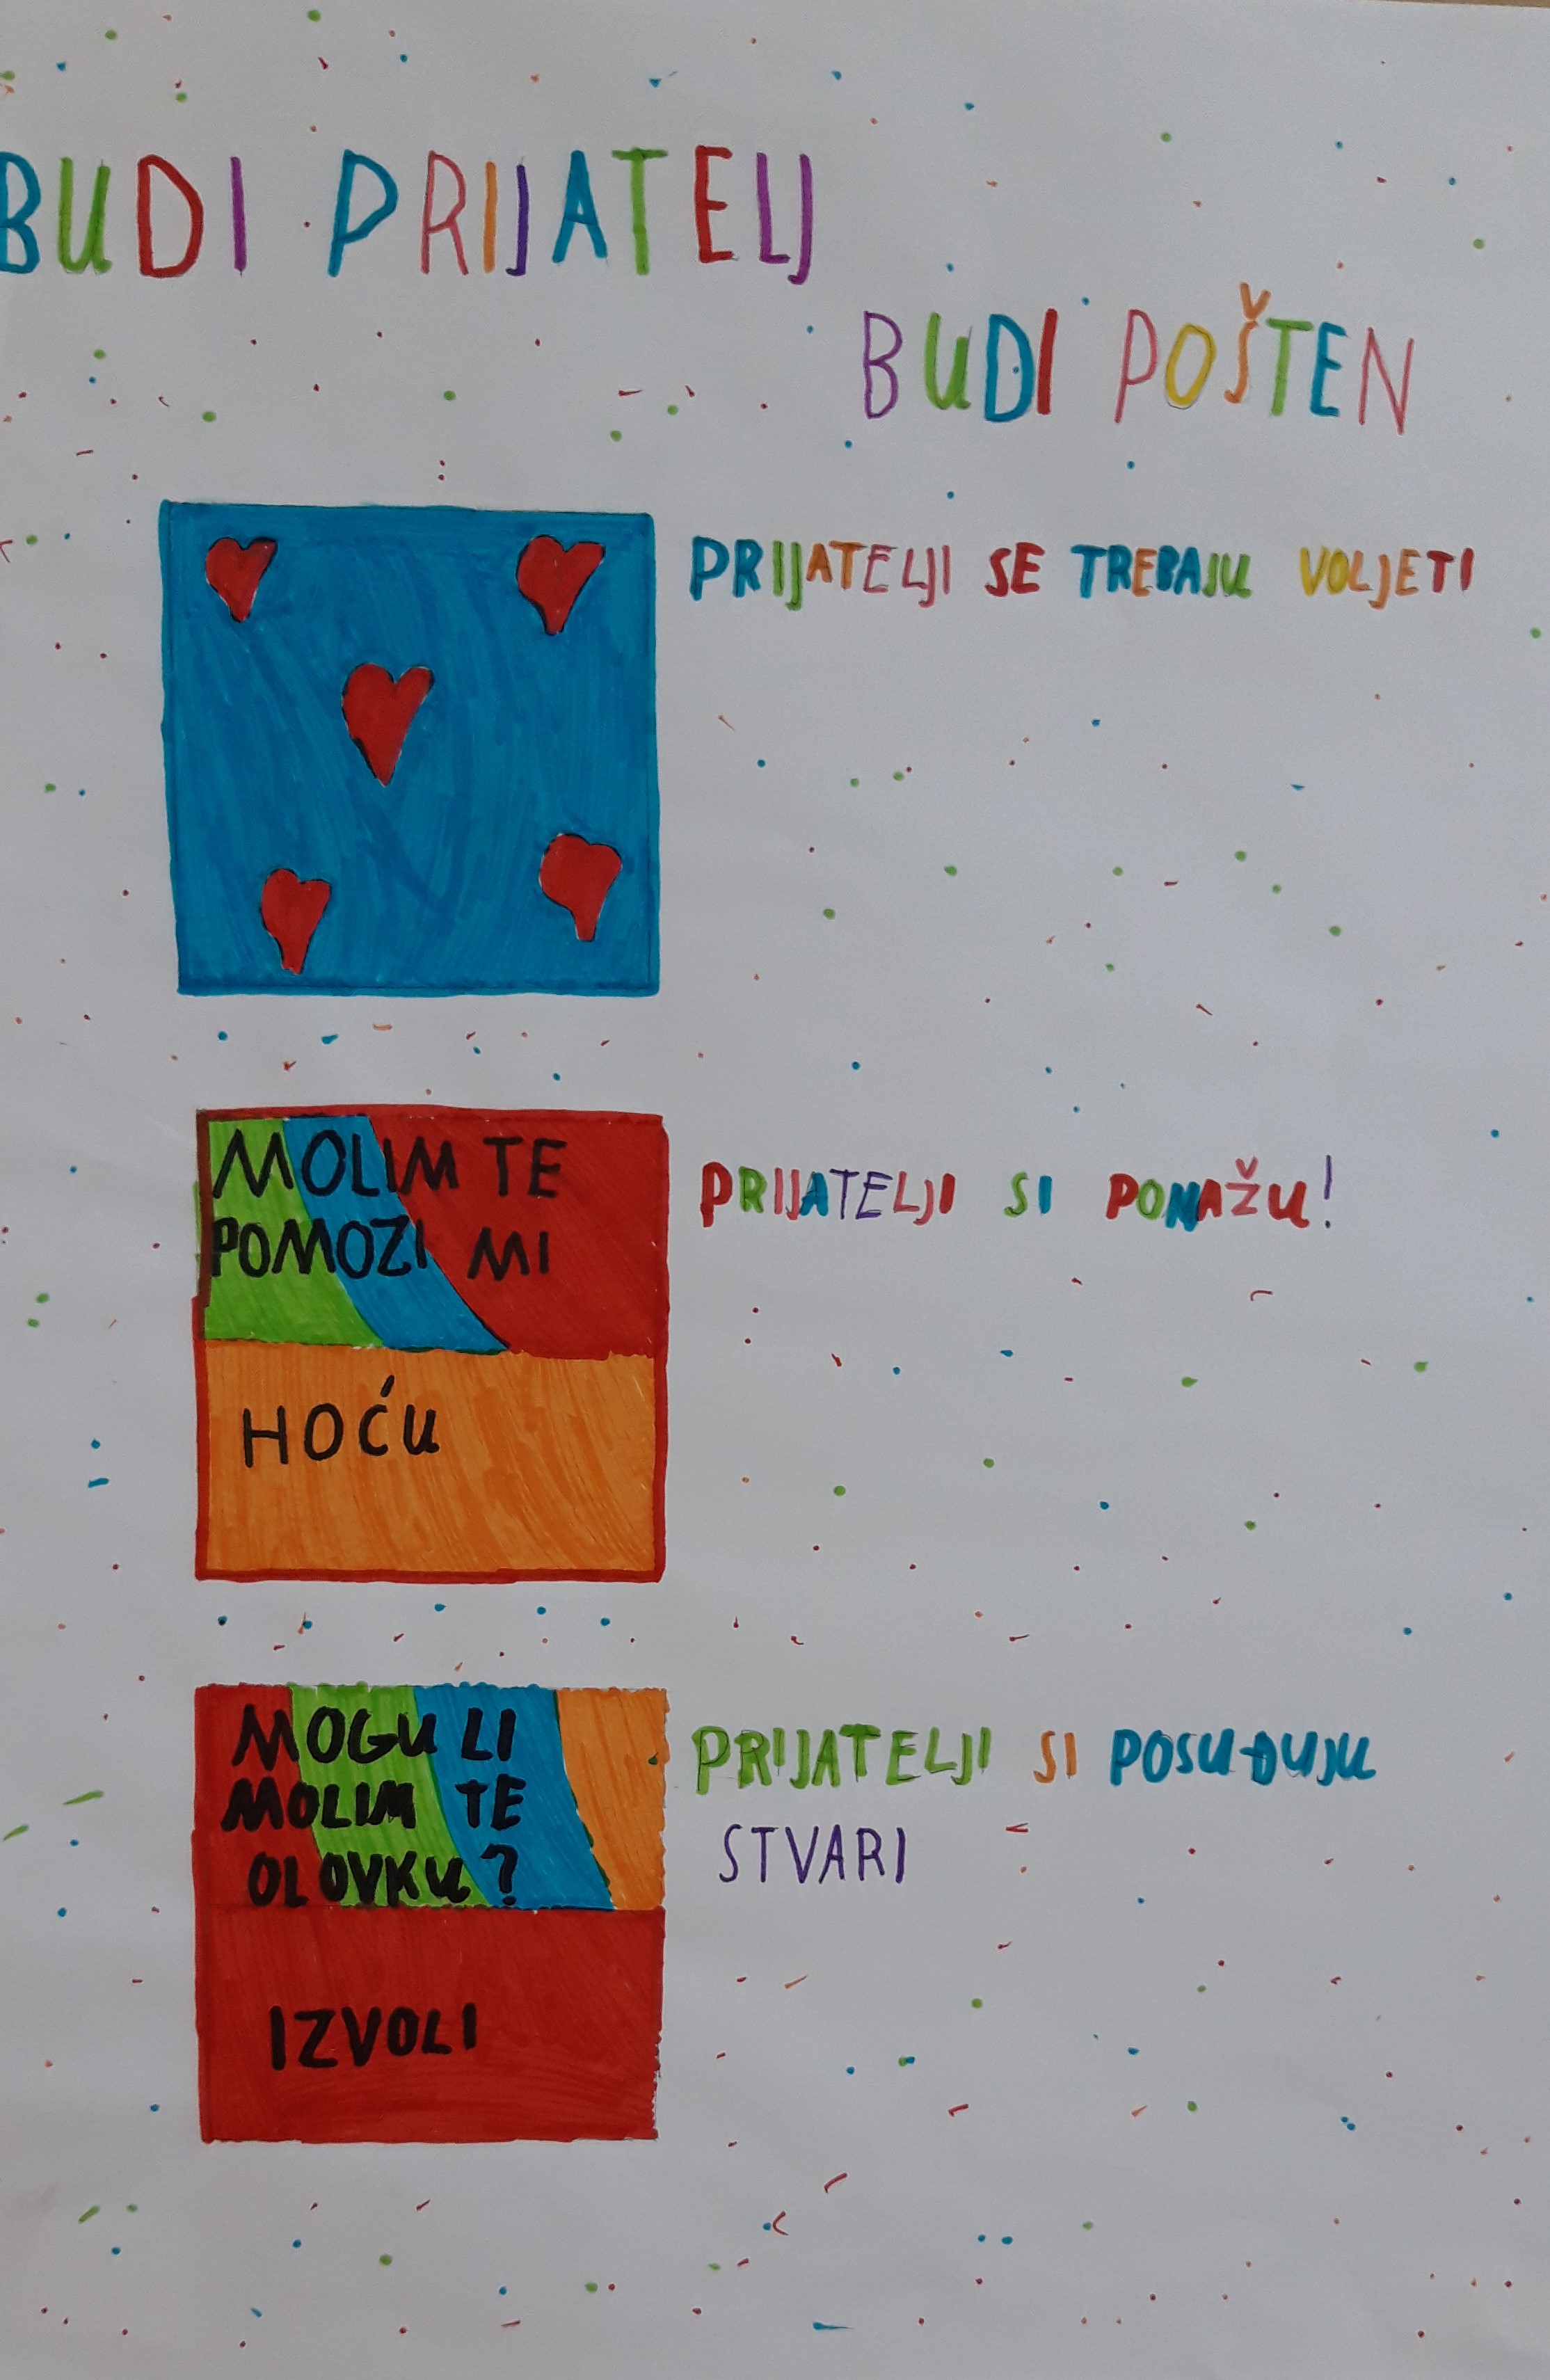 BUDI PRIJATELJ
BUDI POŠTEN
PRIJATELJI SE TREBAJU VOLJETI
MOLIM TE
POMOZI MI
HOĆU
PRIJATELJI SI POMAŽU!
MOGU LI
MOLIM TE
OLOVKU?
IZVOLI
PRIJATELJI SI POSUĐUJU
STVARI